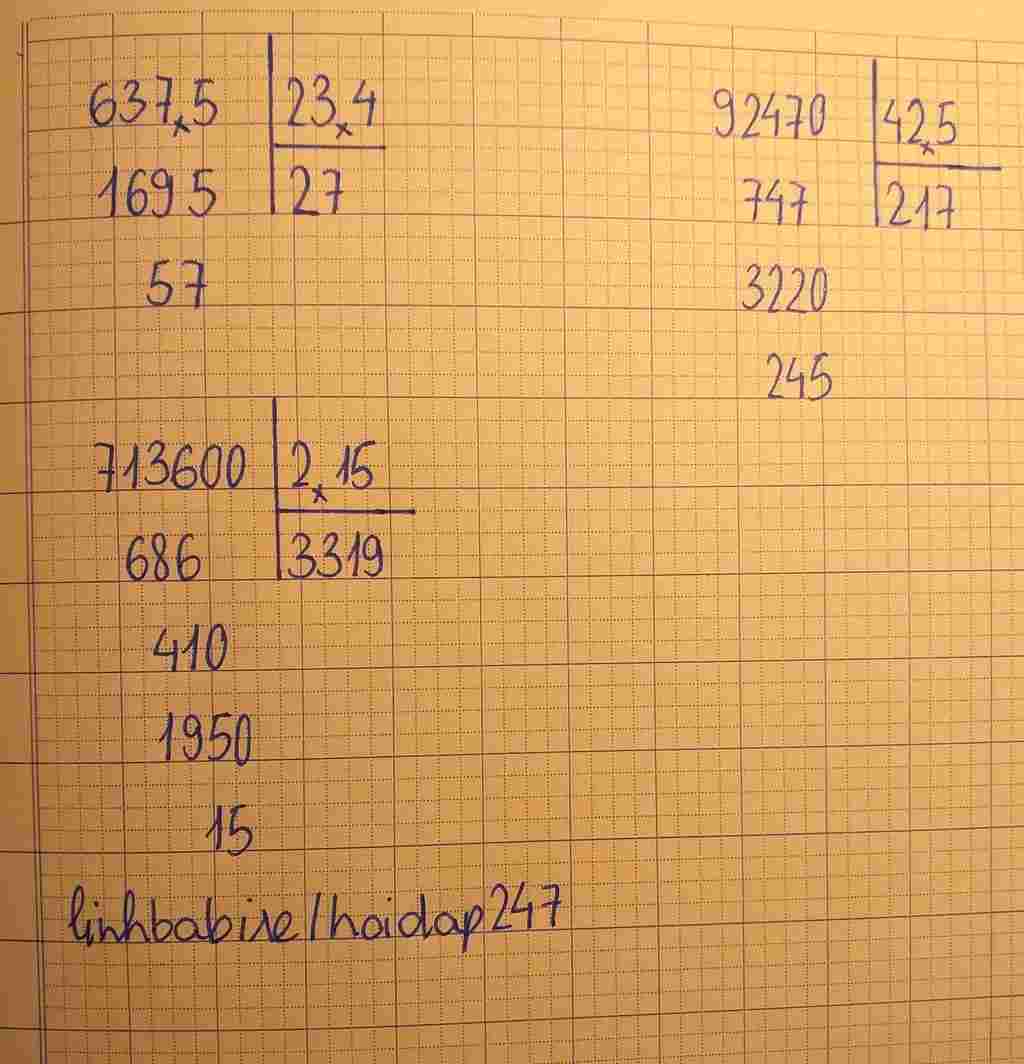 637,5 23,4
1695 27
57
92470 42,5
747 217
3220
245
713600 2,15
686 3319
410
1950
15
linhbabie/hoidap247